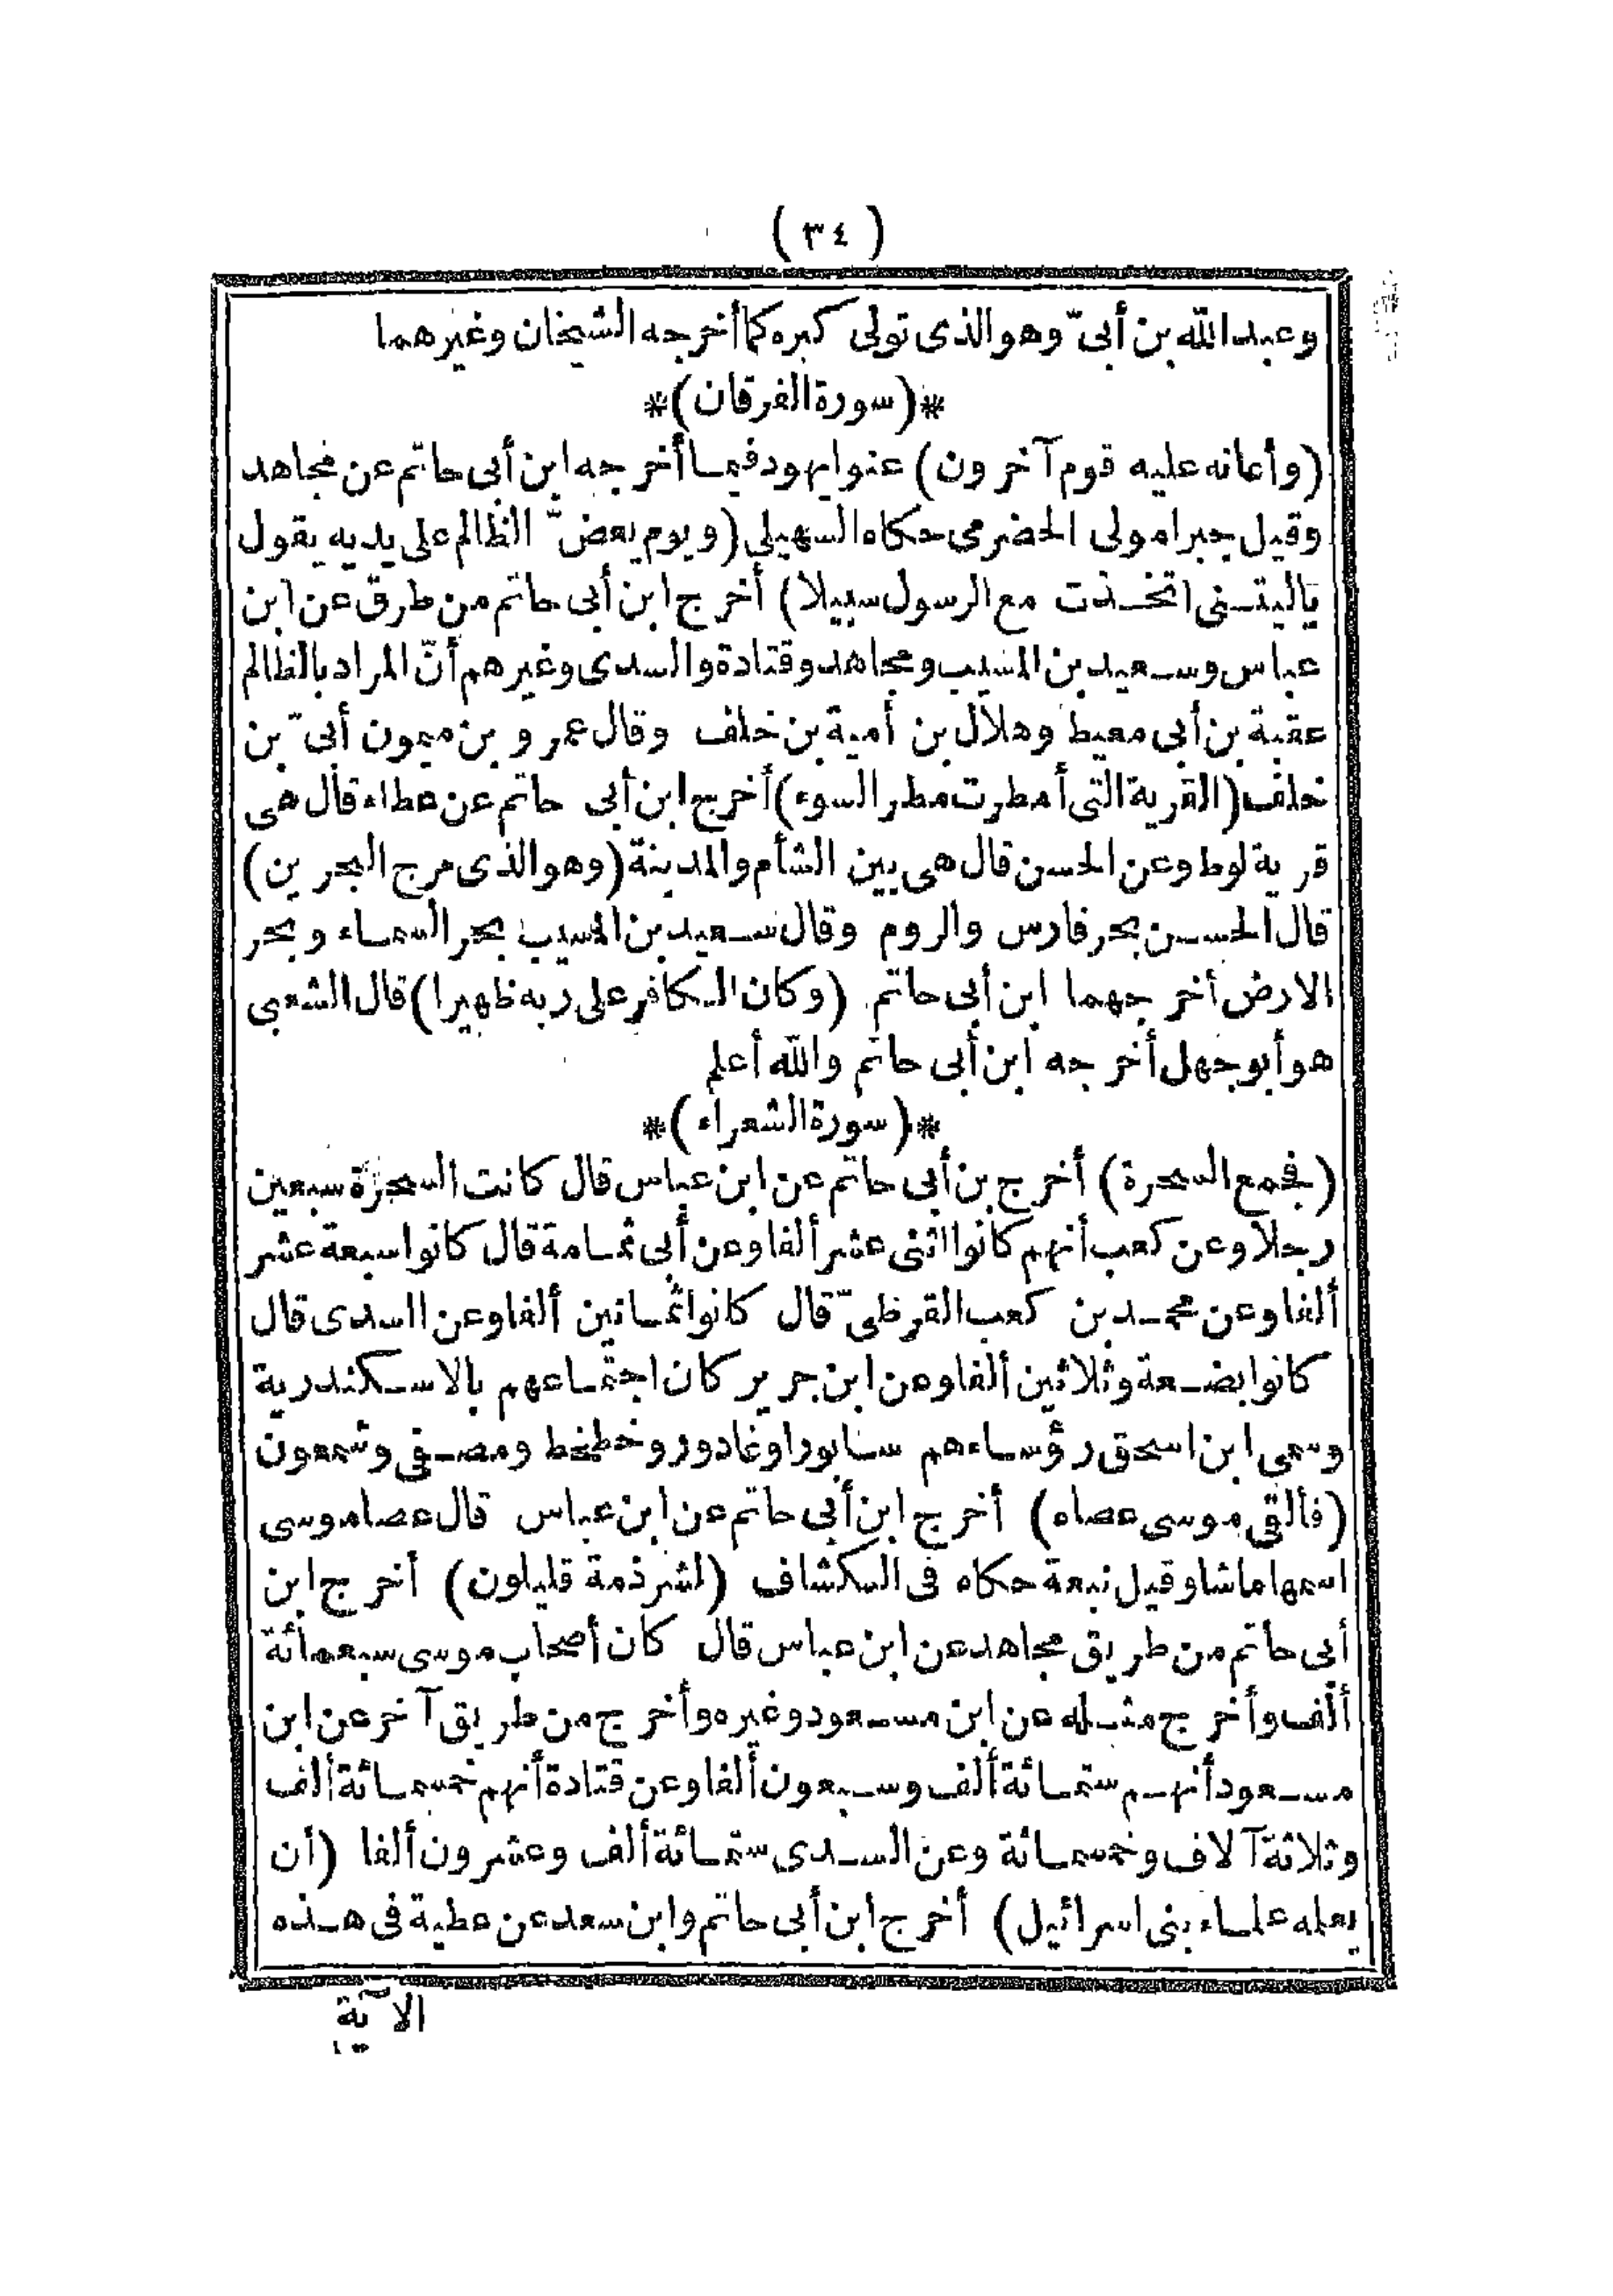 ( ٣٤ )
وعبد الله بن أبىّ وهو الذى تولى كبره كما أخرجه الشيخان وغيرهما
*(سورة الفرقان)*
(وأعانه عليه قوم آخرون) عنوا يهود فيما أخرجه ابن أبى حاتم عن مجاهد
وقيل جبرا مولى الحضرمى حكاه السهيلى (ويوم يعضّ الظالم على يديه يقول
ياليتنى اتخذت مع الرسول سبيلا) أخرج ابن أبى حاتم من طرق عن ابن
عباس وسعيد بن المسيب ومجاهد وقتادة والسدى وغيرهم أنّ المراد بالظالم
عقبة بن أبى معيط وهلال بن أمية بن خلف وقال عمرو بن ميمون أبىّ بن
خلف (القرية التى أمطرت مطر السوء) أخرج ابن أبى حاتم عن عطاء قال هى
قرية لوط وعن الحسن قال هى بين الشأم والمدينة (وهو الذى مرج البحرين)
قال الحسن بحر فارس والروم وقال سعيد بن المسيب بحر السماء وبحر
الارض أخرجهما ابن أبى حاتم (وكان الكافر على ربه ظهيرا) قال الشعبى
هو أبو جهل أخرجه ابن أبى حاتم والله أعلم
*(سورة الشعراء)*
(فجمع السحرة) أخرج بن أبى حاتم عن ابن عباس قال كانت السحرة سبعين
رجلا وعن كعب أنهم كانوا اثنى عشر ألفا وعن أبى ثمامة قال كانوا سبعة عشر
ألفا وعن محمد بن كعب القرظىّ قال كانوا ثمانين ألفا وعن السدى قال
كانوا بضعة وثلاثين ألفا وعن ابن جرير كان اجتماعهم بالاسكندرية
وسمى ابن اسحق رؤساءهم سابورا وغادور وخطخط ومصفى وشمعون
(فألقى موسى عصاه) أخرج ابن أبى حاتم عن ابن عباس قال عصا موسى
اسمها ماشا وقيل نبعة حكاه فى الكشاف (لشرذمة قليلون) أخرج ابن
أبى حاتم من طريق مجاهد عن ابن عباس قال كان أصحاب موسى سبعمائة
ألف وأخرج مثله عن ابن مسعود وغيره وأخرج من طريق آخر عن ابن
مسعود أنهم ستمائة ألف وسبعون ألفا وعن قتادة أنهم خمسمائة ألف
وثلاثة آلاف وخمسمائة وعن السدى ستمائة ألف وعشرون ألفا (أن
يعلمه علماء بنى اسرائيل) أخرج ابن أبى حاتم وابن سعد عن عطية فى هذه
الآية